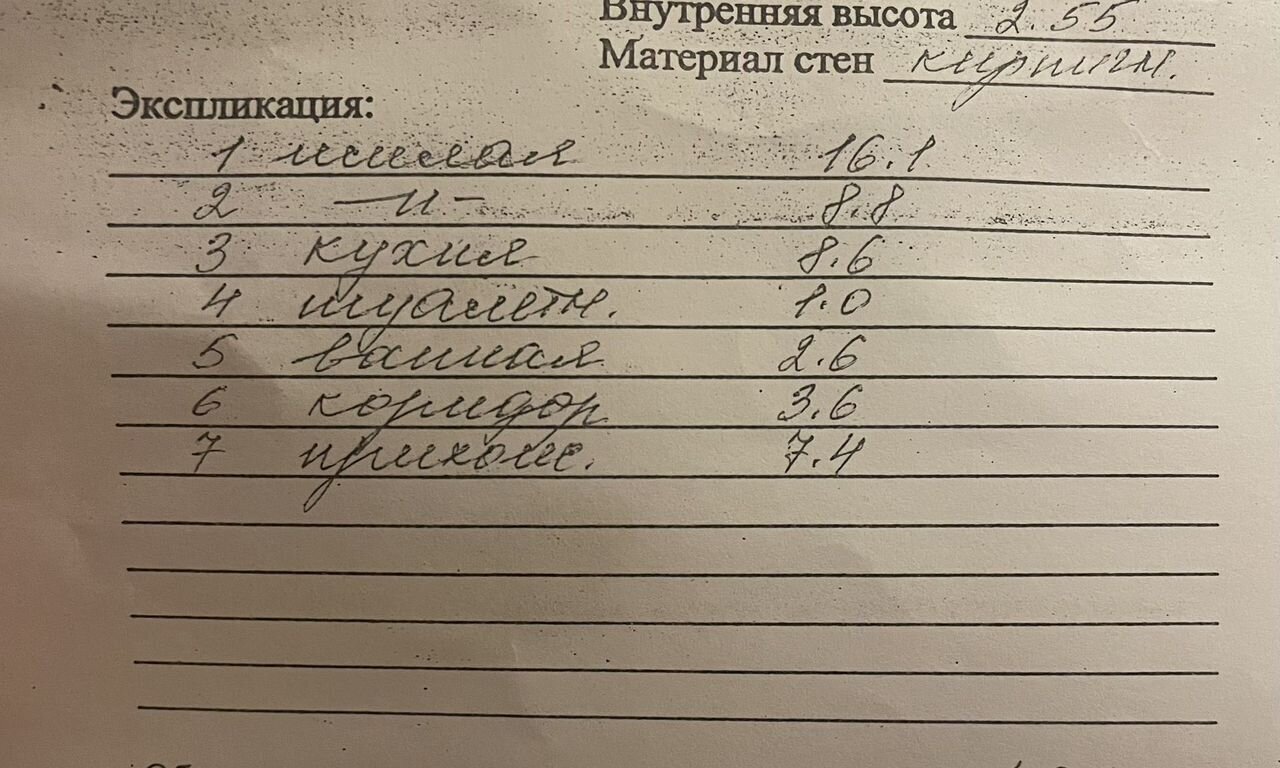 Внутренняя высота 2.55
Материал стен кирпичн.
Экспликация:
1 жилая 16.1
2 —"— 8.8
3 кухня 8.6
4 туалетн. 1.0
5 ванная 2.6
6 коридор 3.6
7 прихож. 7.4